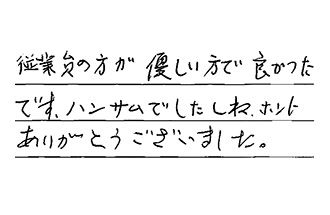 従業員の方が 優しい方で 良かった
です、ハンサムでしたしね、ホント
ありがとうございました。